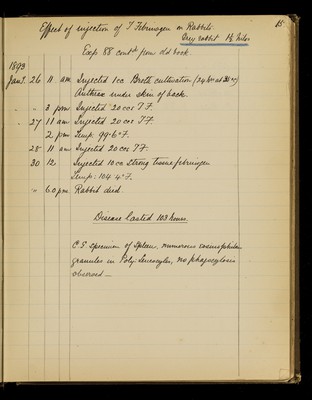 15
Effect of injection of T Fibrinogen on Rabbits.
Grey rabbit 1½ kilos
Exp 88 contd from old book.
1893
Jany. 26 11 am Injected 1cc Broth cultivation (24 hrs at
Anthrax under skin of back.
" 3 pm Injected 20 ccs T.F.
" 27 11 am Injected 20 ccs T.F.
2 pm Temp. 99.6°F.
28 11 am Injected 20 ccs TF
30 12 Injected 10 cc strong tissue fibrinogen
Temp: 104.4°F.
" 6.0 pm Rabbit died
Disease lasted 103 hours.
C.S. specimen of Spleen, numerous eosinophilous
granules in Poly: Leucocytes, no phagocytosis
observed —